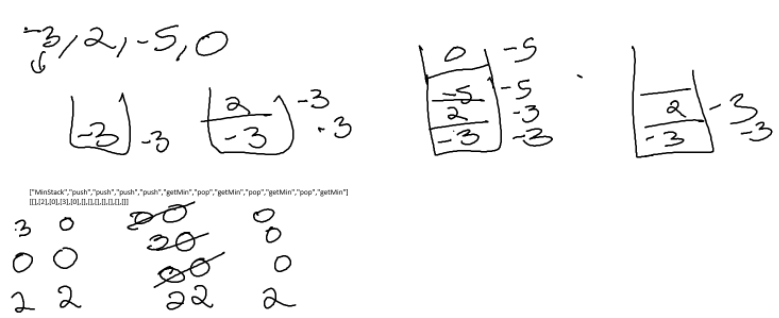 -3, 2, -5, 0
-3 -3
2 -3
-3 -3
0 -5
-5 -5
2 -3
-3 -3
2 -3
-3 -3
["MinStack","push","push","push","push","getMin","pop","getMin","pop","getMin","pop","getMin"]
[[],[2],[0],[3],[0],[],[],[],[],[],[],[]]
3 0
0 0
2 2
00 0
30 0
00 0
22 2